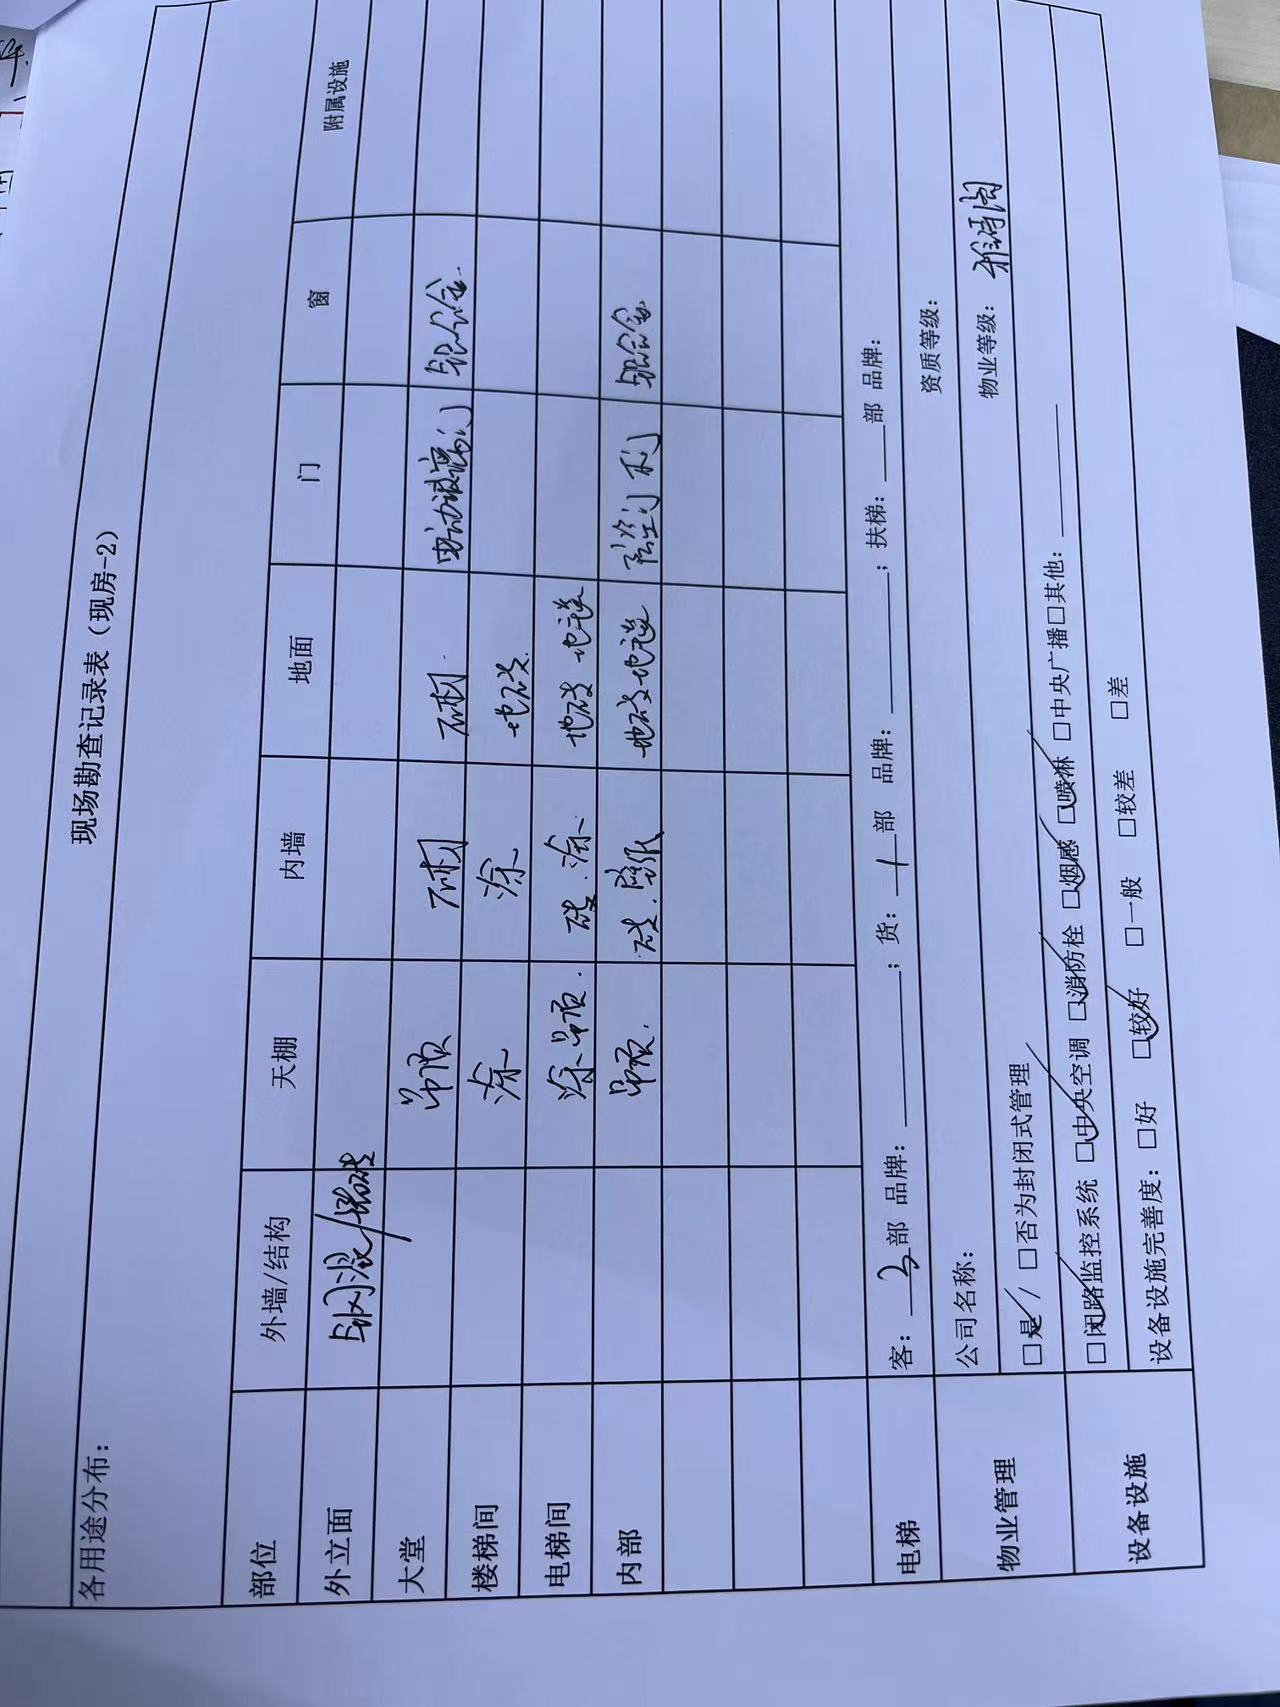 现场勘查记录表（现房-2）
各用途分布：
部位 外墙/结构 天棚 内墙 地面 门 窗 附属设施
外立面 钢混/墙砖
大堂 吊顶 石材 石材 电动玻璃门 铝合金
楼梯间 涂 涂 地砖
电梯间 涂 吊顶 砖、涂 地砖 地毯
内部 吊顶 砖、壁纸 地砖 地毯 铝合金
电梯 客：3部 品牌：；货：1部 品牌：；扶梯：部 品牌：
物业管理 公司名称： 资质等级：
□是√ □否为封闭式管理 物业等级： 雅诗阁
设备设施 □√闭路监控系统 □√中央空调 □√消防栓 □√烟感 □√喷淋 □中央广播□其他：
设备设施完善度：□好 □√较好 □一般 □较差 □差